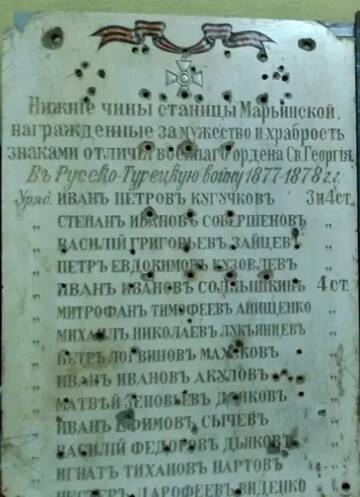 Нижніе чины станицы Марьинской,
награжденные за мужество и храбрость
знаками отличія военнаго ордена Св. Георгія.
Въ Русско-Турецкую войну 1877-1878 г.г.
Уряд. ИВАНЪ ПЕТРОВЪ КУГУЧКОВЪ 3 и 4 ст.
„ СТЕПАНЪ ИВАНОВЪ СОВЕРШЕНОВЪ „
„ ВАСИЛІЙ ГРИГОРЬЕВЪ ЗАЙЦЕВЪ „
„ ПЕТРЪ ЕВДОКИМОВЪ КУЗОВЛЕВЪ „
„ ИВАНЪ ИВАНОВЪ 4 ст.
„ МИТРОФАНЪ ТИМОФЕЕВЪ АНИЩЕНКО „
„ МИХАИЛЪ НИКОЛАЕВЪ ЛУКЬЯНЦЕВЪ „
„ ПЕТРЪ ЛОГВИНОВЪ „
„ ИВАНЪ ИВАНОВЪ АКУЛОВЪ „
„ МАТВѢЙ ЗЕНОВЬЕВЪ „
„ ИВАНЪ ЕФИМОВЪ СЫЧЕВЪ „
„ ВАСИЛІЙ ФЕДОРОВЪ ДЬЯКОВЪ „
„ ИГНАТЪ ТИХАНОВЪ НАРТОВЪ „
НЕСТЕРЪ ДАРОФЕЕВЪ ВИДЕНКО